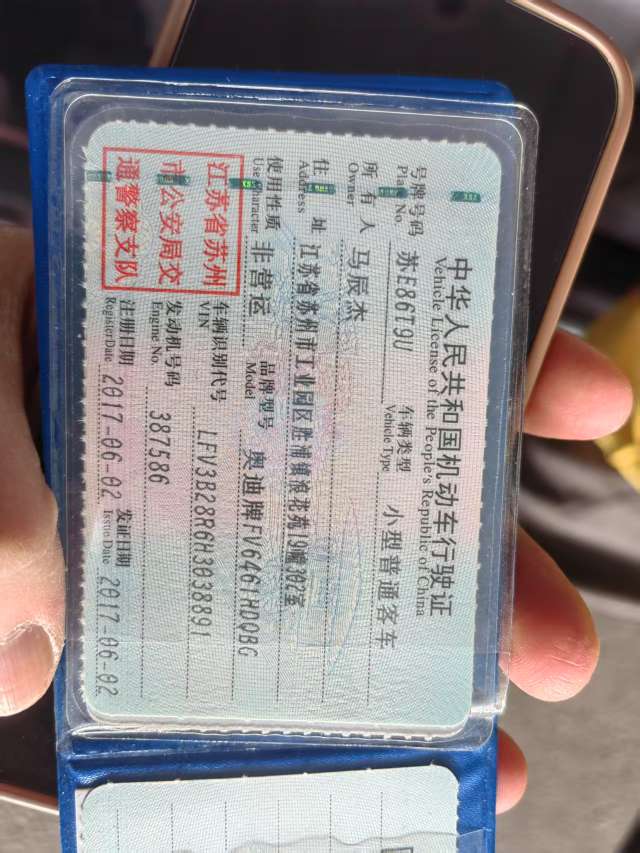 中华人民共和国机动车行驶证
Vehicle License of the People's Republic of China
号牌号码 苏E86T9U 车辆类型 小型普通客车
Plate No. Vehicle Type
所有人 马辰杰
Owner
住址 江苏省苏州市工业园区胜浦镇浪花苑110幢302室
Address
使用性质 非营运 品牌型号 奥迪牌FV6461HDQBG
Use Character Model
江苏省苏州
市公安局交
通警察支队
车辆识别代号 LFV3B28R6H3038891
VIN
发动机号码 387586
Engine No.
注册日期 2017-06-02 发证日期 2017-06-02
Register Date Issue Date